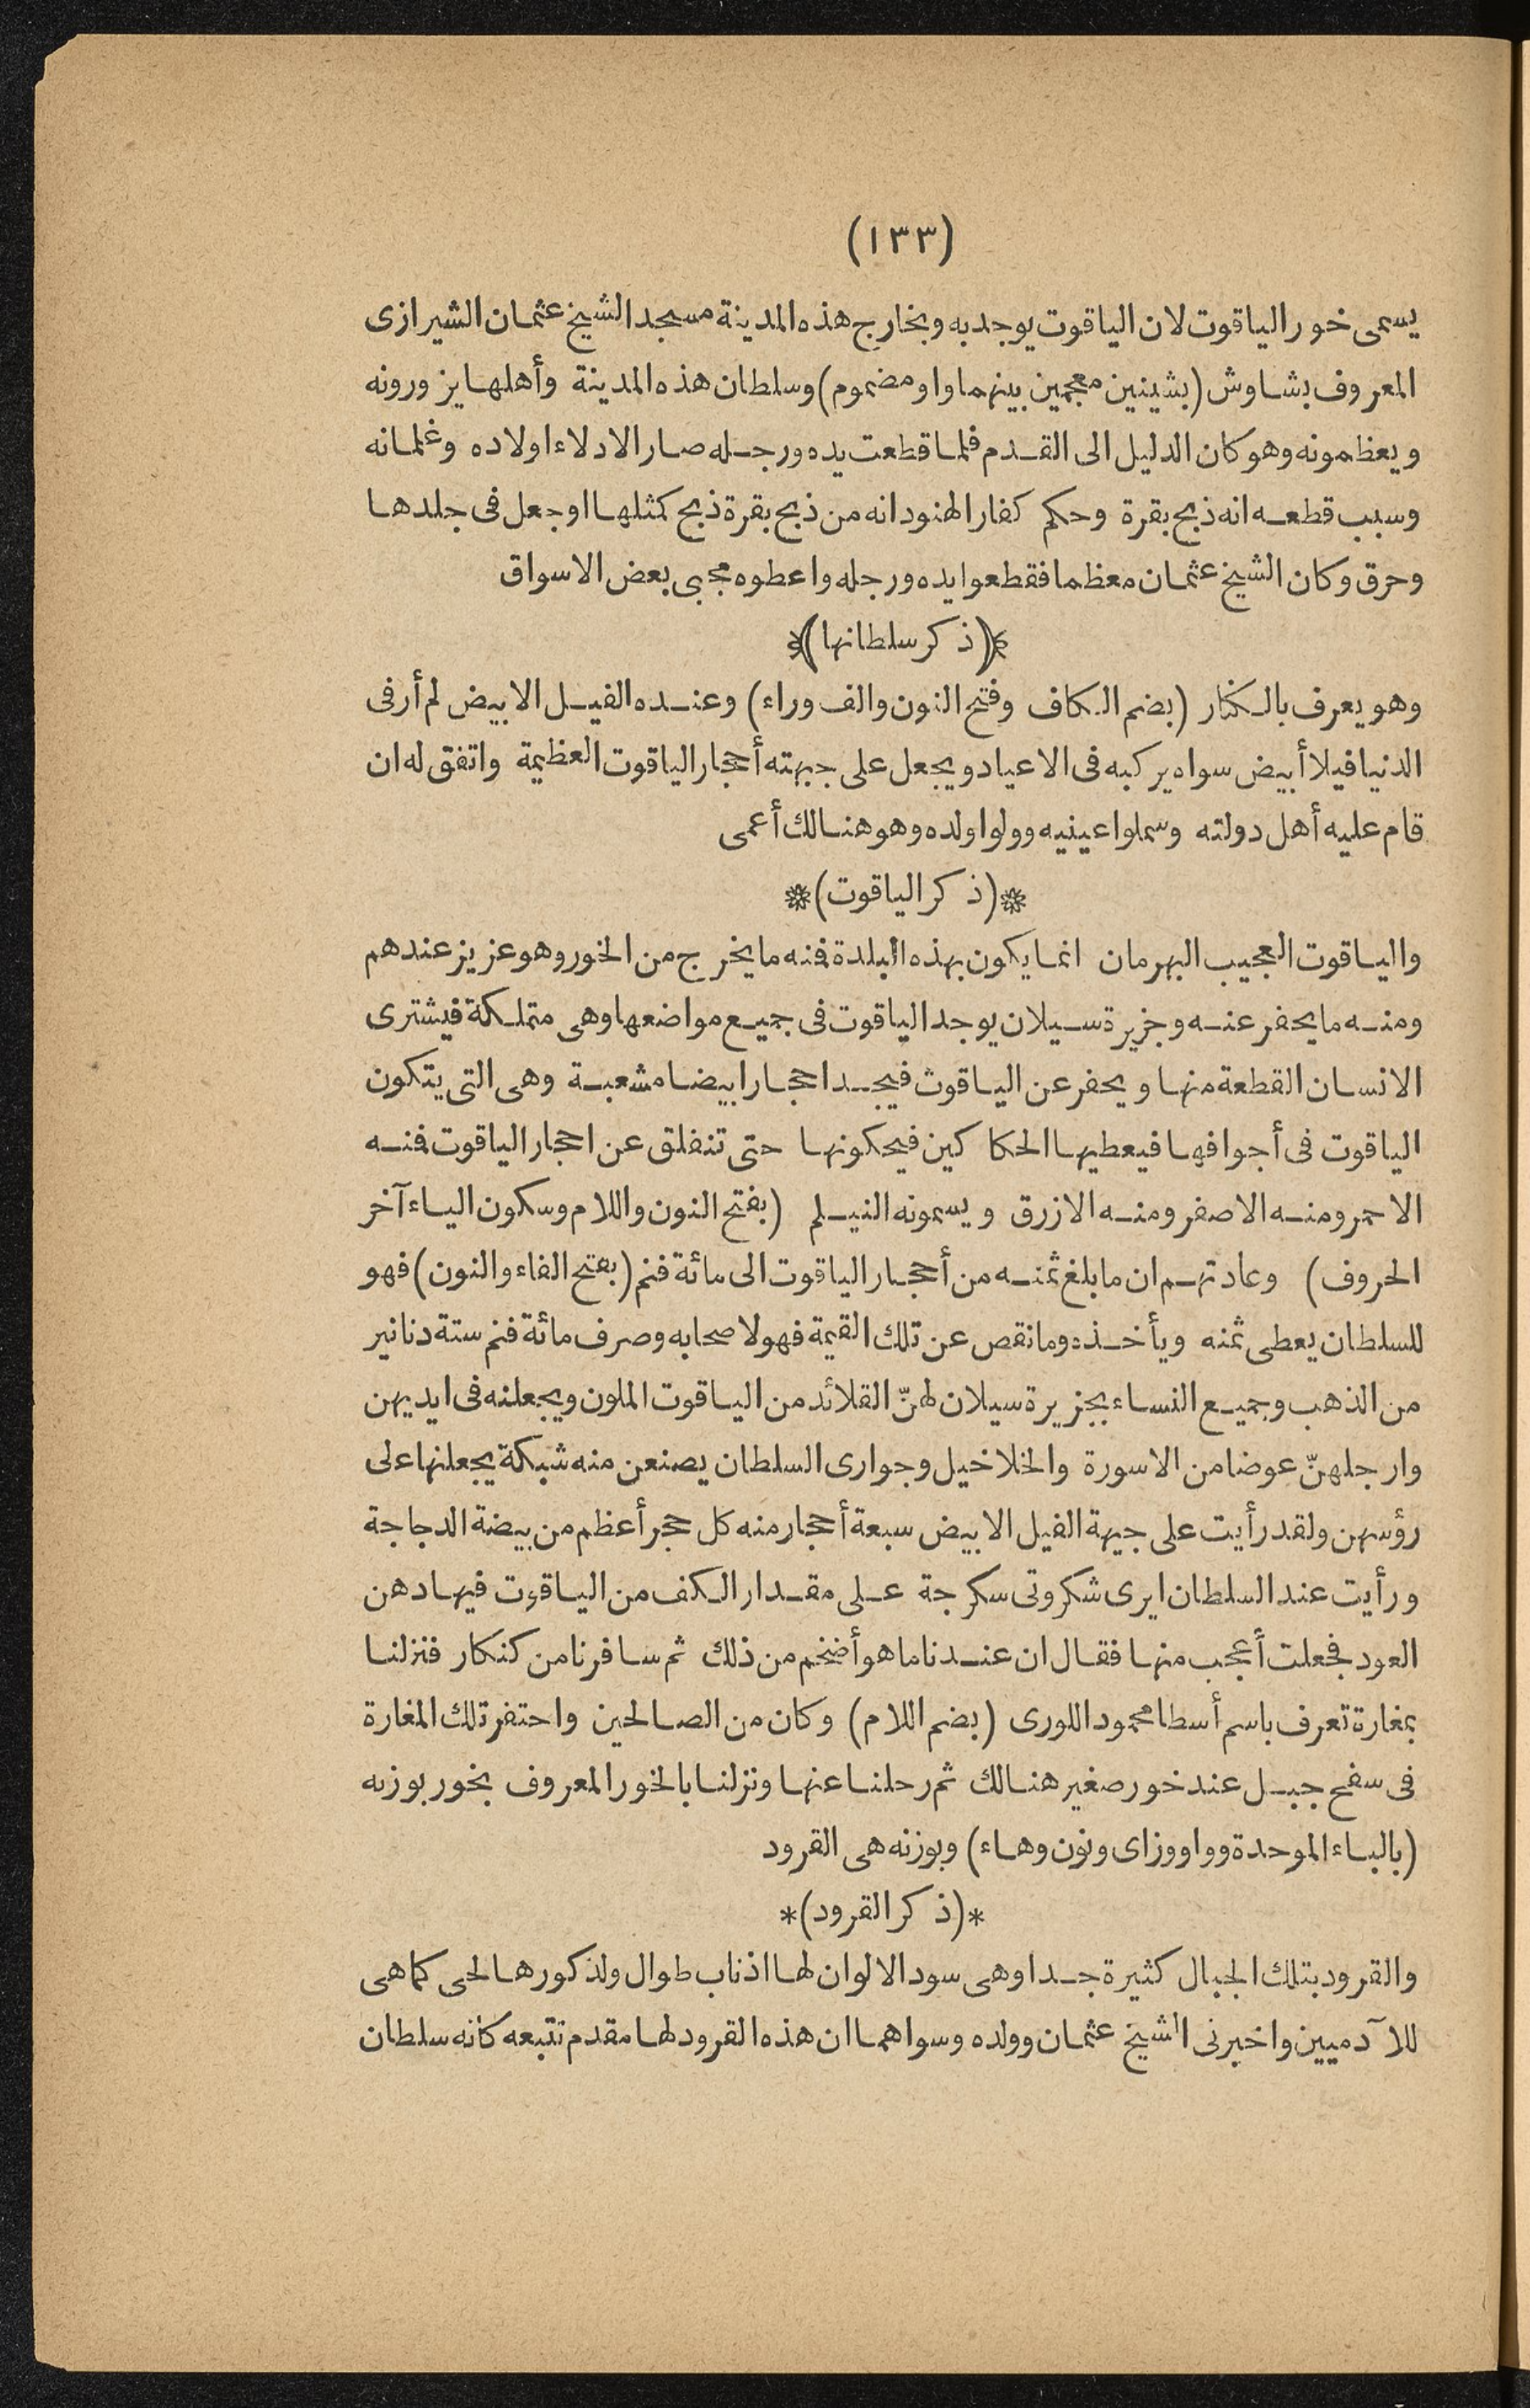 (١٣٣)
يسمى خور الياقوت لان الياقوت يوجد به وبخارج هذه المدينة مسجد الشيخ عثمان الشيرازى
المعروف بشاوش (بشينين معجمين بينهما واو مضموم) وسلطان هذه المدينة وأهلها يزورونه
ويعظمونه وهو كان الدليل الى القدم فلما قطعت يده ورجله صار الادلاء اولاده وغلمانه
وسبب قطعه انه ذبح بقرة وحكم كفار الهنود انه من ذبح بقرة ذبح كمثلها او جعل فى جلدها
وحرق وكان الشيخ عثمان معظما فقطعوا يده ورجله واعطوه مجبى بعض الاسواق
*(ذكر سلطانها)*
وهو يعرف بالكنار (بضم الكاف وفتح النون والف وراء) وعنده الفيل الابيض لم أر فى
الدنيا فيلا أبيض سواه يركبه فى الاعياد ويجعل على جبهته أحجار الياقوت العظيمة واتفق له ان
قام عليه أهل دولته وسملوا عينيه وولوا ولده وهو هنالك أعمى
*(ذكر الياقوت)*
والياقوت العجيب البهرمان انما يكون بهذه البلدة فنه ما يخرج من الخور وهو عزيز عندهم
ومنه ما يحفر عنه وجزيرة سيلان يوجد الياقوت فى جميع مواضعها وهى متملكة فيشترى
الانسان القطعة منها ويحفر عن الياقوت فيجد احجارا بيضا مشعبة وهى التى يتكون
الياقوت فى أجوافها فيعطيها الحكاكين فيحكونها حتى تنفلق عن احجار الياقوت فنه
الاحمر ومنه الاصفر ومنه الازرق ويسمونه النيلم (بفتح النون واللام وسكون الياء آخر
الحروف) وعادتهم ان ما بلغ ثمنه من أحجار الياقوت الى مائة فنم (بفتح الفاء والنون) فهو
للسلطان يعطى ثمنه ويأخذه وما نقص عن تلك القيمة فهو لاصحابه وصرف مائة فنم ستة دنانير
من الذهب وجميع النساء بجزيرة سيلان لهنّ القلائد من الياقوت الملون ويجعلنه فى ايديهن
وارجلهنّ عوضا من الاسورة والخلاخيل وجوارى السلطان يصنعن منه شبكة يجعلنها على
رؤسهن ولقد رأيت على جبهة الفيل الابيض سبعة أحجار منه كل حجر أعظم من بيضة الدجاجة
ورأيت عند السلطان ايرى شكروتى سكرجة على مقدار الكف من الياقوت فيها دهن
العود فجعلت أعجب منها فقال ان عندنا ما هو أضخم من ذلك ثم سافرنا من كنكار فنزلنا
بمغارة تعرف باسم أسطا محمود اللورى (بضم اللام) وكان من الصالحين واحتفر تلك المغارة
فى سفح جبل عند خور صغير هنالك ثم رحلنا عنها ونزلنا بالخور المعروف بخور بوزنه
(بالباء الموحدة وواو وزاى ونون وهاء) وبوزنه هى القرود
*(ذكر القرود)*
والقرود بتلك الجبال كثيرة جدا وهى سود الالوان لها اذناب طوال ولذكورها لحى كما هى
للآدميين واخبرنى الشيخ عثمان وولده وسواهما ان هذه القرود لها مقدم تتبعه كانه سلطان